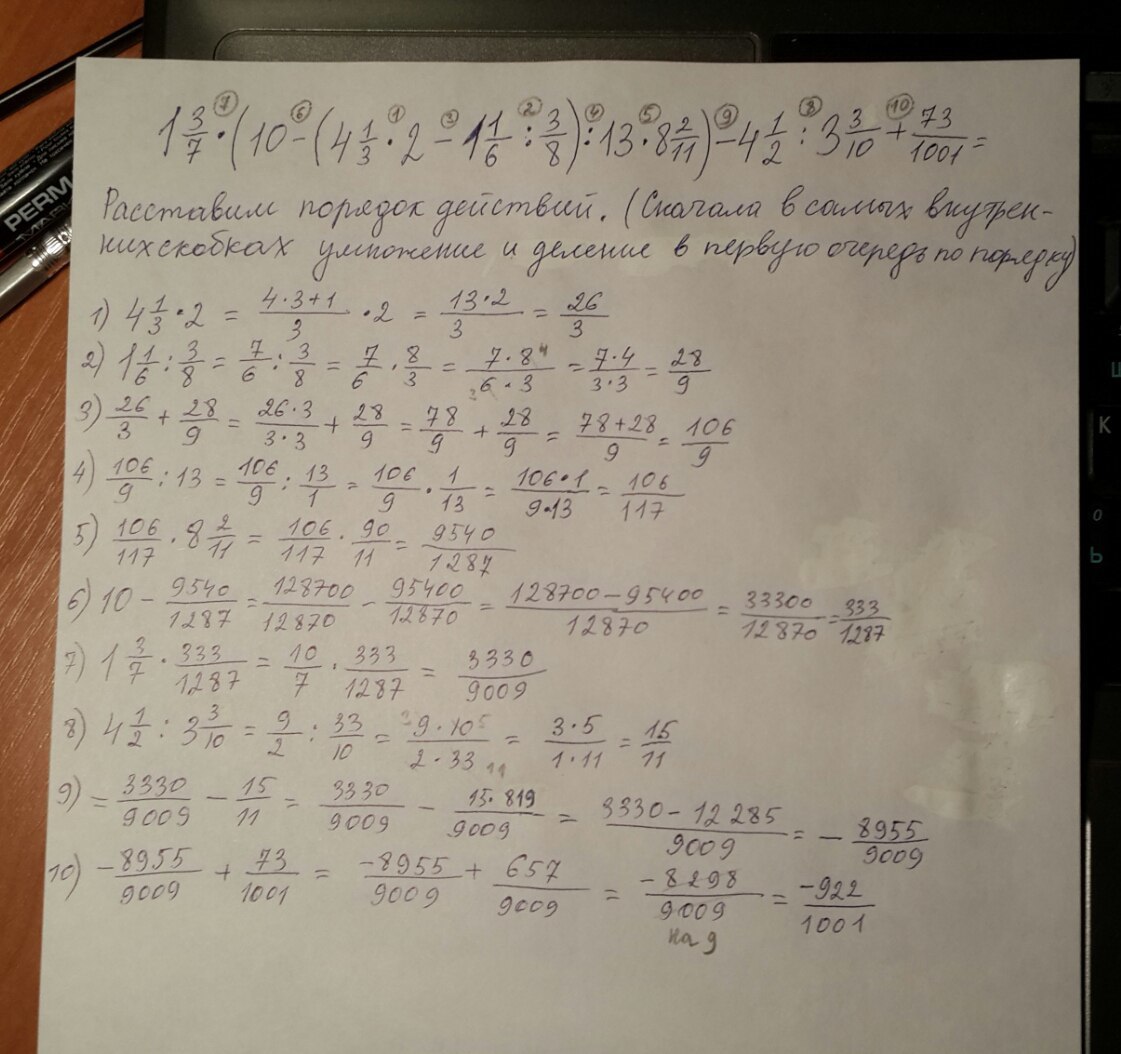 ⑦ ⑥ ① ③ ② ④ ⑤ ⑨ ⑧ ⑩
1 3/7 · (10 - (4 1/3 · 2 - 1 1/6 : 3/8) : 13 · 8 2/11) - 4 1/2 : 3 3/10 + 73/1001 =
Расставим порядок действий. (Сначала в самых внутрен-
них скобках умножение и деление в первую очередь по порядку)
1) 4 1/3 · 2 = (4·3+1)/3 · 2 = (13·2)/3 = 26/3
2) 1 1/6 : 3/8 = 7/6 : 3/8 = 7/6 · 8/3 = (7·8 4)/(3 6·3) = (7·4)/(3·3) = 28/9
3) 26/3 + 28/9 = (26·3)/(3·3) + 28/9 = 78/9 + 28/9 = (78+28)/9 = 106/9
4) 106/9 : 13 = 106/9 : 13/1 = 106/9 · 1/13 = (106·1)/(9·13) = 106/117
5) 106/117 · 8 2/11 = 106/117 · 90/11 = 9540/1287
6) 10 - 9540/1287 = 128700/12870 - 95400/12870 = (128700-95400)/12870 = 33300/12870 = 333/1287
7) 1 3/7 · 333/1287 = 10/7 · 333/1287 = 3330/9009
8) 4 1/2 : 3 3/10 = 9/2 : 33/10 = (3 9·10 5)/(2·33 11) = (3·5)/(1·11) = 15/11
9) = 3330/9009 - 15/11 = 3330/9009 - (15·819)/9009 = (3330-12285)/9009 = -8955/9009
10) -8955/9009 + 73/1001 = -8955/9009 + 657/9009 = -8298/9009 = -922/1001
на 9
PERM
К
О
Ь